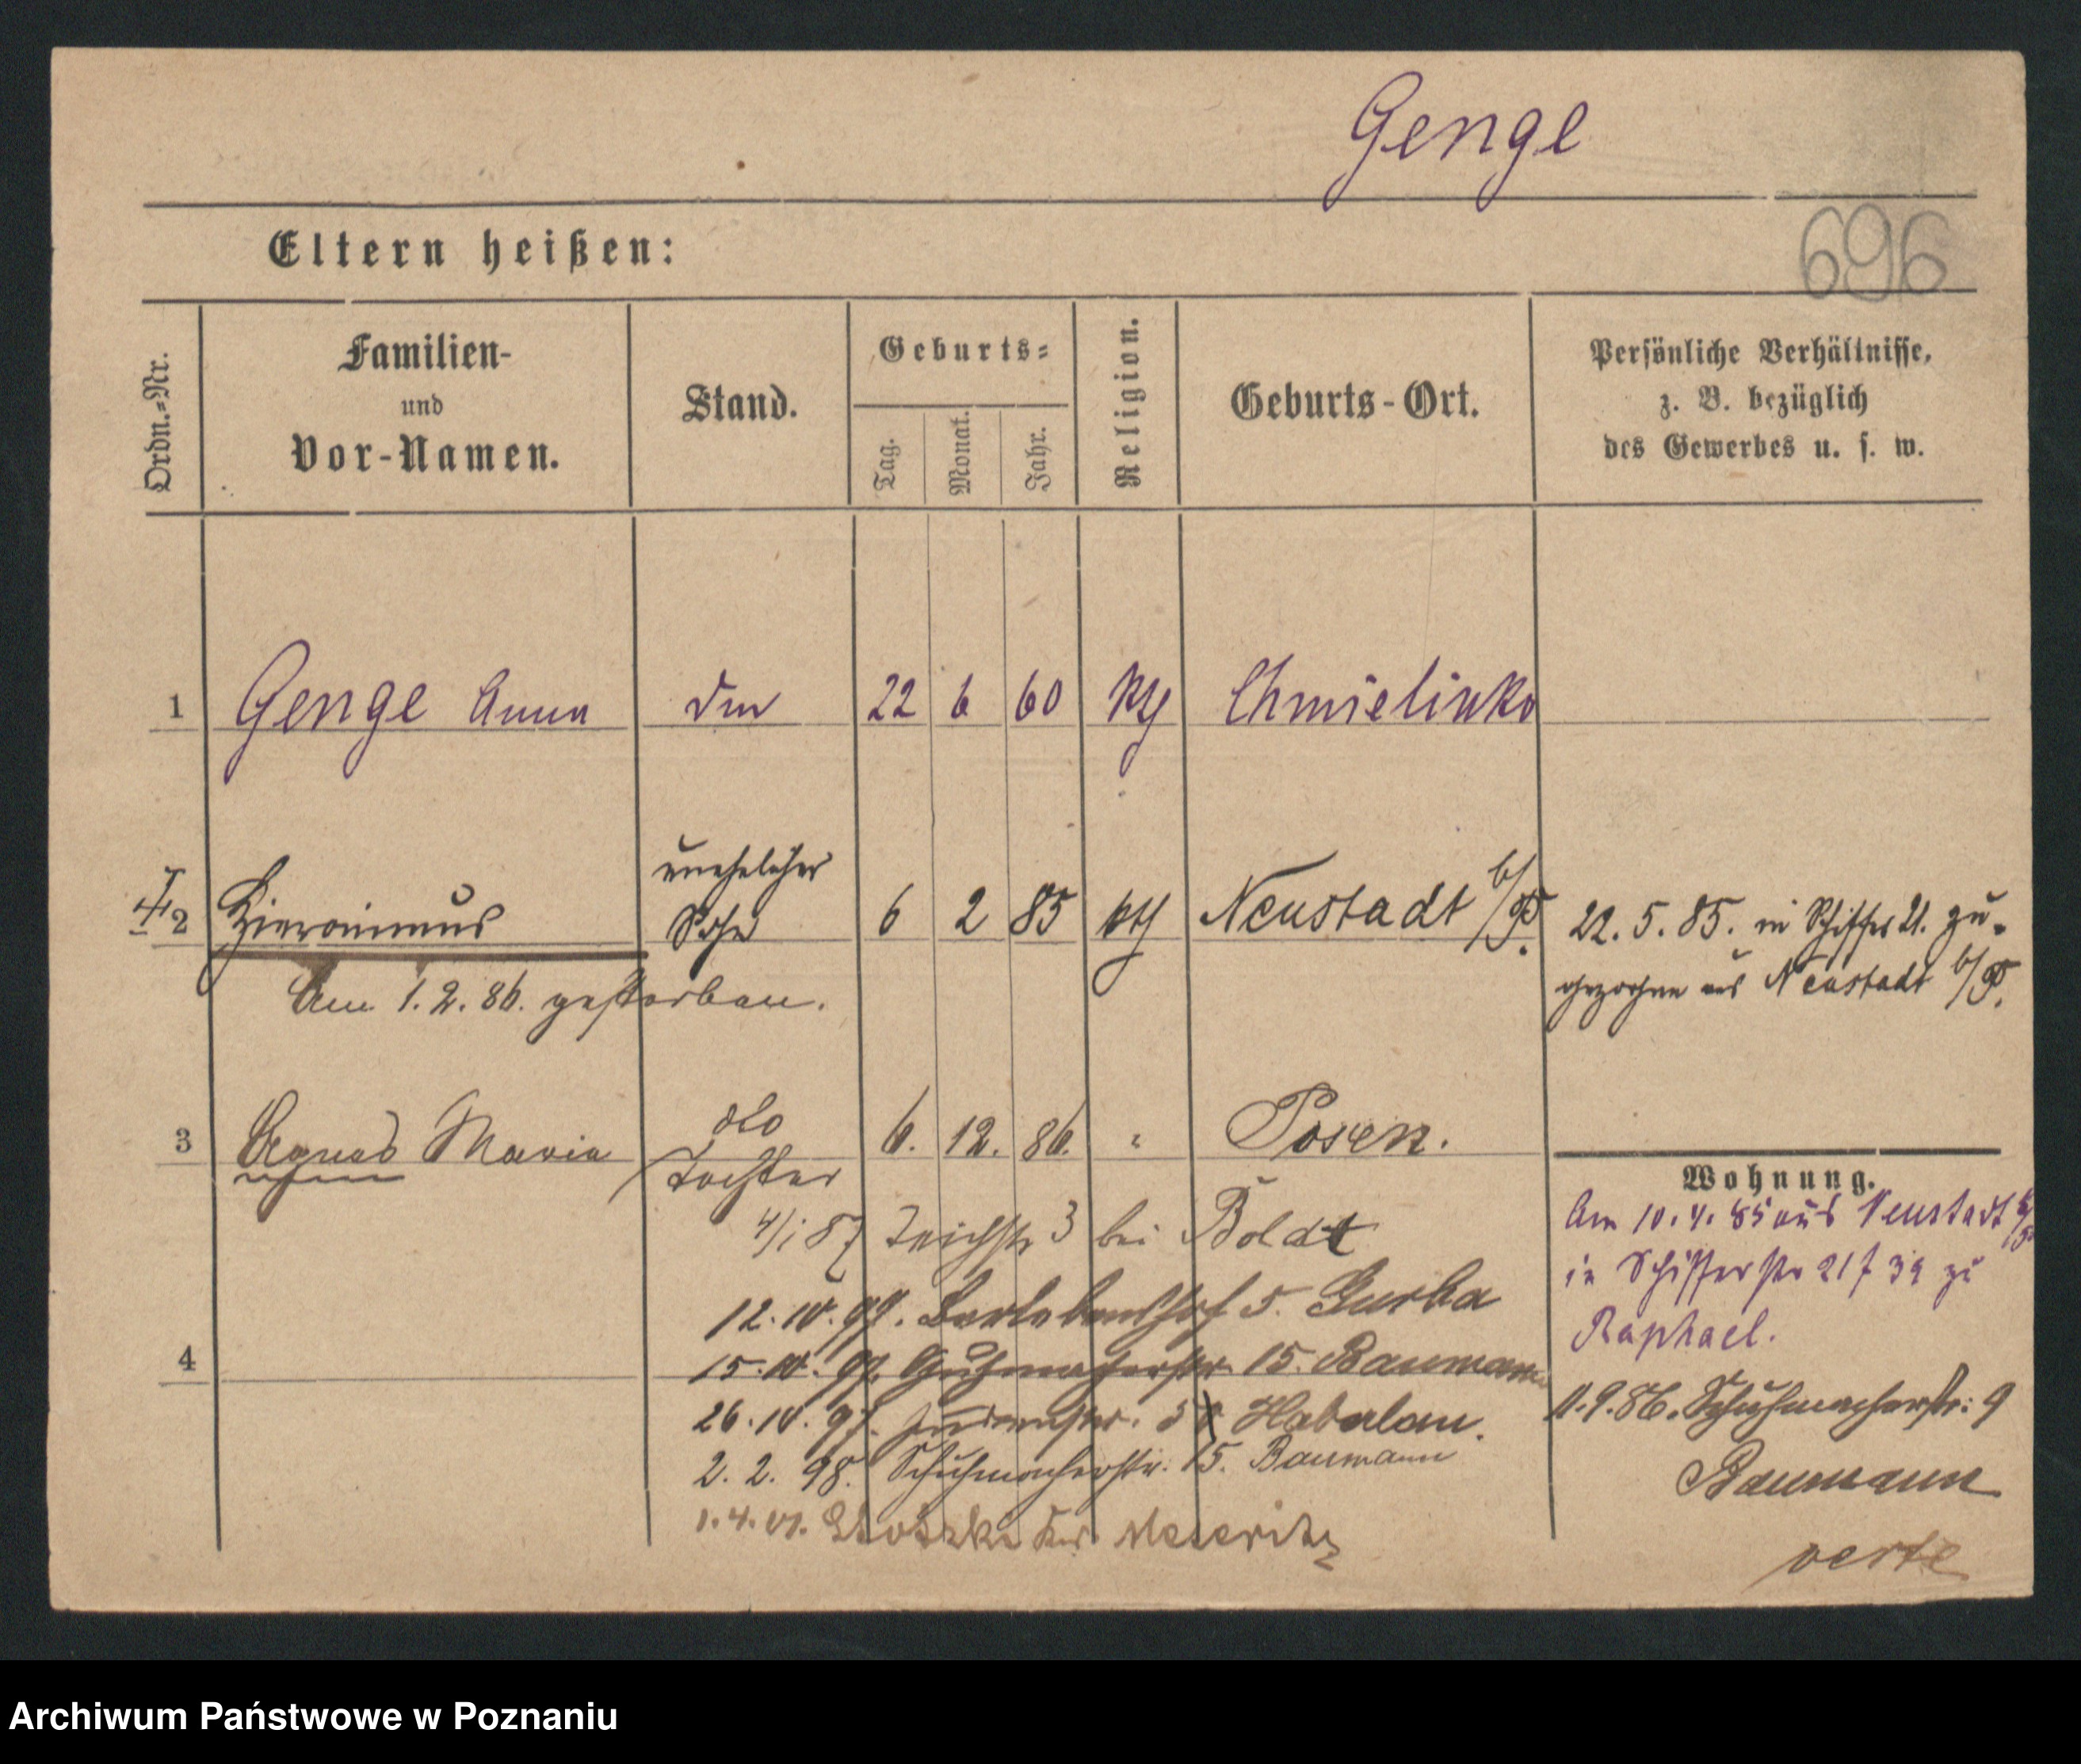 Genge
696
Eltern heißen:
Ordn.=Nr.
Familien-
und
Vor-Namen.
Stand.
Geburts=
Tag.
Monat.
Jahr.
Religion.
Geburts-Ort.
Persönliche Verhältnisse,
z. B. bezüglich
des Gewerbes u. s. w.
1 Genge Anna 22 6 60 Chmielinko
unehelicher
2 Hieronimus Sohn 6 2 85 kth Neustadt b/P. 22. 5. 85. in Schifferst 21. zu-
gezogen aus Neustadt b/P.
Am 1. 2. 86. gestorben.
3 Agnes Maria dto 6. 12. 86. " Posen.
Tochter
Wohnung.
Am 10. 4. 85 aus Neustadt b/P
in Schifferstr 21 39 zu
Raphael.
11. 9. 86. Schuhmacherstr: 9
Baumann
verte
4/1 87 Teichstr 3 bei Boldt
12. 10. 97. Berlebenshof 5. Gurba
4
15. 10. 97. Schuhmacherstr. 15. Baumann
26. 10. 97. Judenstr. Haberlau.
2. 2. 98. Schuhmacherstr. 15. Baumann
1. 4. 01. Krs Meseritz
Archiwum Państwowe w Poznaniu